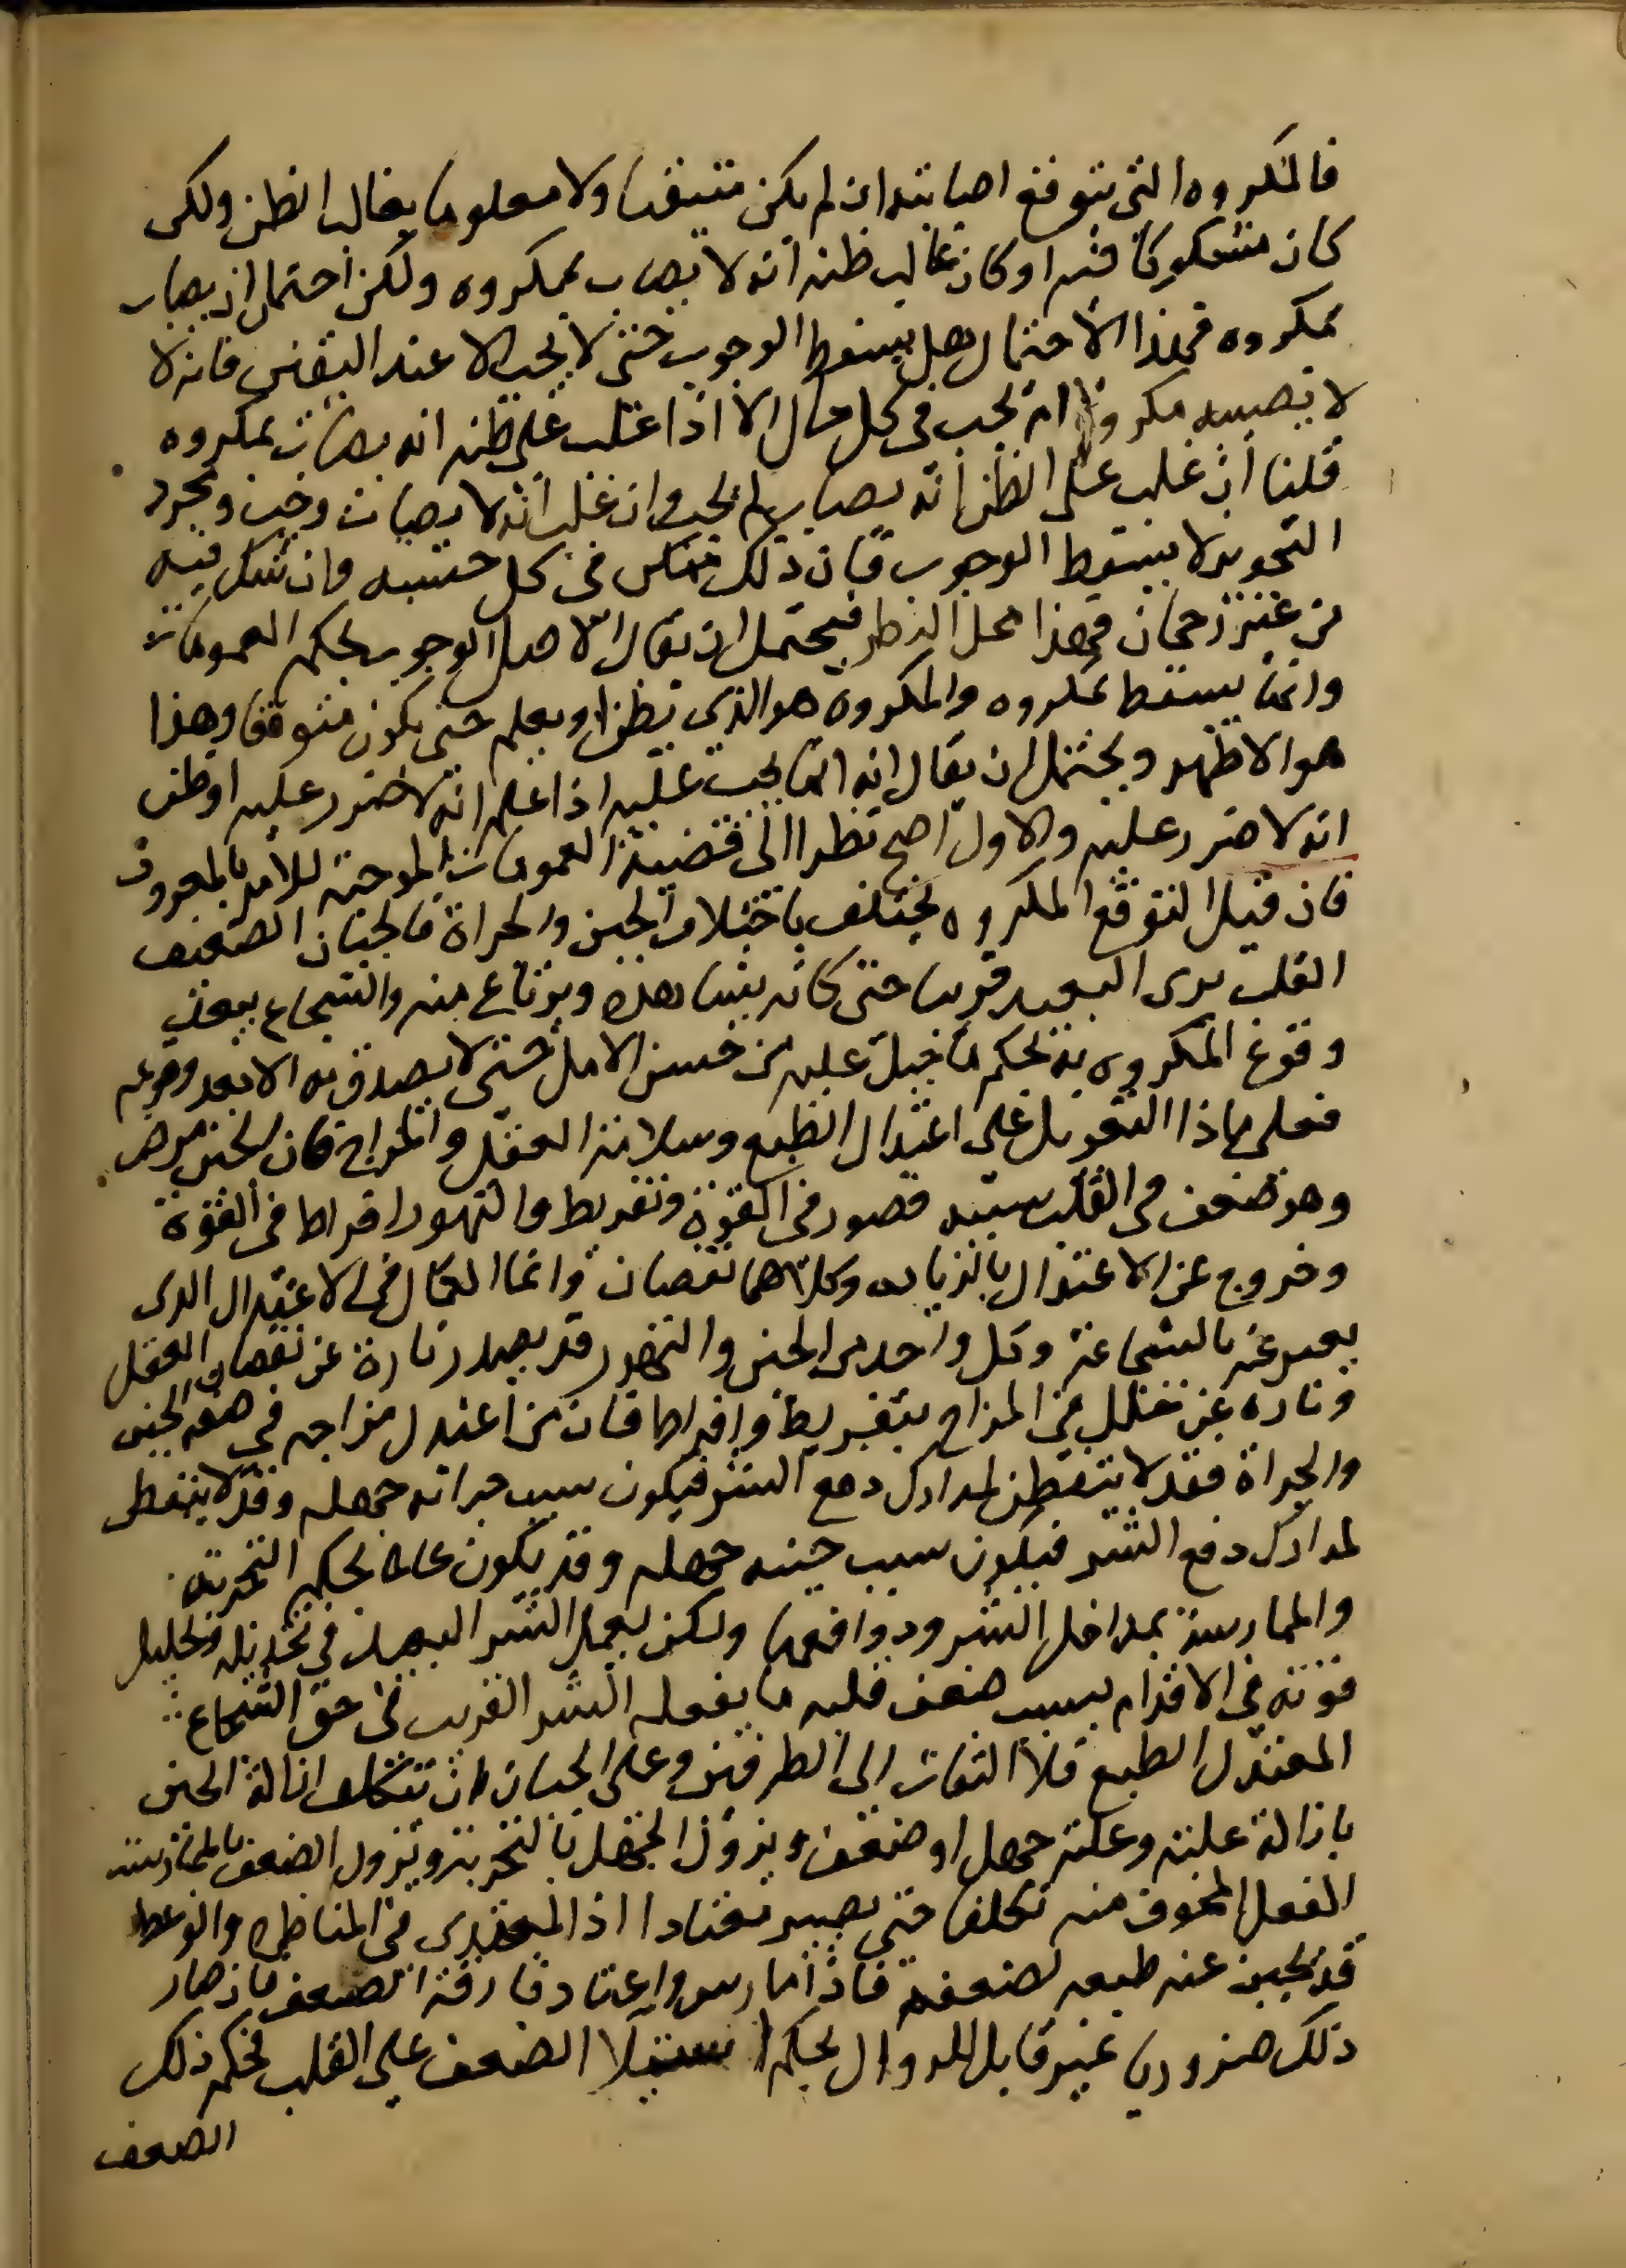 فالمكروه التى يتوقع اصابته ان لم يكن متيقنا ولا معلوما بغالب الظن ولكن
كان مشكوكا فيه او كان غالب ظنه انه لا يصاب بمكروه ولكن احتمل ان يصاب
بمكروه فهذا الاحتمال هل يسقط الوجوب حتى لا يجب الا عند اليقين فانه لا
لا يصيبه مكروه ام يجب فى كل حال الا اذا غلب على ظنه انه يصاب بمكروه
قلنا ان غلب على الظن انه يصاب لم يجب وان غلب انه لا يصاب وجب ومجرد
التجويز لا يسقط الوجوب فان ذلك ممكن فى كل حسبه وان شك فيه
من غير رجحان فهذا محل النظر فيحتمل ان يقال الاصل الوجوب بحكم العمومات
وانما يسقط بمكروه والمكروه هو الذى يظن او يعلم حتى يكون متوقعا وهذا
هو الاظهر ويحتمل ان يقال انه انما يجب عليه اذا علم انه لا ضرر عليه او ظن
انه لا ضرر عليه والاول اصح نظرا الى قضية العمومات الموجبة للامر بالمعروف
فان قيل التوقع المكروه يختلف باختلاف الجبن والجراة فالجبان الضعيف
القلب يرى البعيد قريبا حتى كانه يشاهده ويرتاع منه والشجاع يبعد
وقوع المكروه به بحكم ما جبل عليه من حسن الامل حتى لا يصدق به الا بعد وقوعه
فعلى ماذا التعويل على اعتدال الطبع وسلامة العقل والمزاج فان الجبن مرض
وهو ضعف فى القلب سببه قصور فى القوة وتفريط والتهور افراط فى القوة
وخروج عن الاعتدال بالزيادة وكلاهما نقصان وانما الكمال فى الاعتدال الذى
يعبر عنه بالشجاعة وكل واحد من الجبن والتهور قد يصدر تارة عن نقصان العقل
وتاره عن خلل فى المزاج بتفريط وافراط فان من اعتدل مزاجه فى صفة الجبن
والجراة فقد لا يتفطن لمدارك دفع الشر فيكون سبب جراته جهله وقد لا يتفطن
لمدارك دفع الشر فيكون سبب جبنه جهله وقد يكون عالما بحكم التجربة
والممارسة بمداخل الشر ودوافعها ولكن يعمل الشر البعيد فى تخذيله وتحليل
قوته فى الاقدام بسبب ضعف قلبه ما يفعله الشر القريب فى حق الشجاع
المعتدل الطبع فلا التفات الى الطرفين وعلى الجبان ان يتكلف ازالة الجبن
بازالة علته وعلته جهل او ضعف ويزول الجهل بالتجربة ويزول الضعف بالممارسة
الفعل المخوف منه تكلفا حتى يصير معتادا اذ المبتدى فى المناظرة والوعظ
قد يجبن عنه طبعه لضعفه فاذا مارس واعتاد فارقه الضعف فان صار
ذلك ضروريا غير قابل للزوال بحكم استيلا الضعف على القلب فحكم ذلك
الضعف